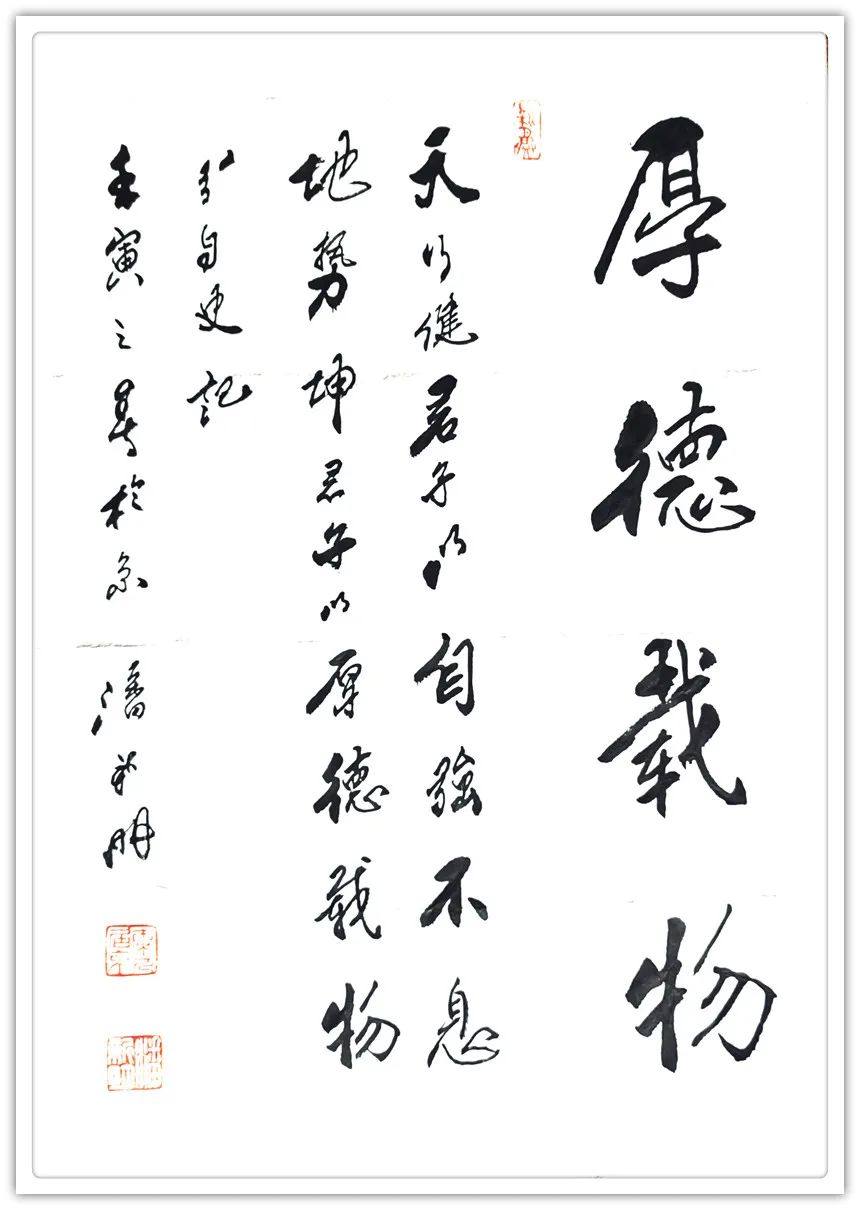 厚德载物
天行健君子以自強不息
地势坤君子以厚德载物
自史记
壬寅之春於京 潘 明